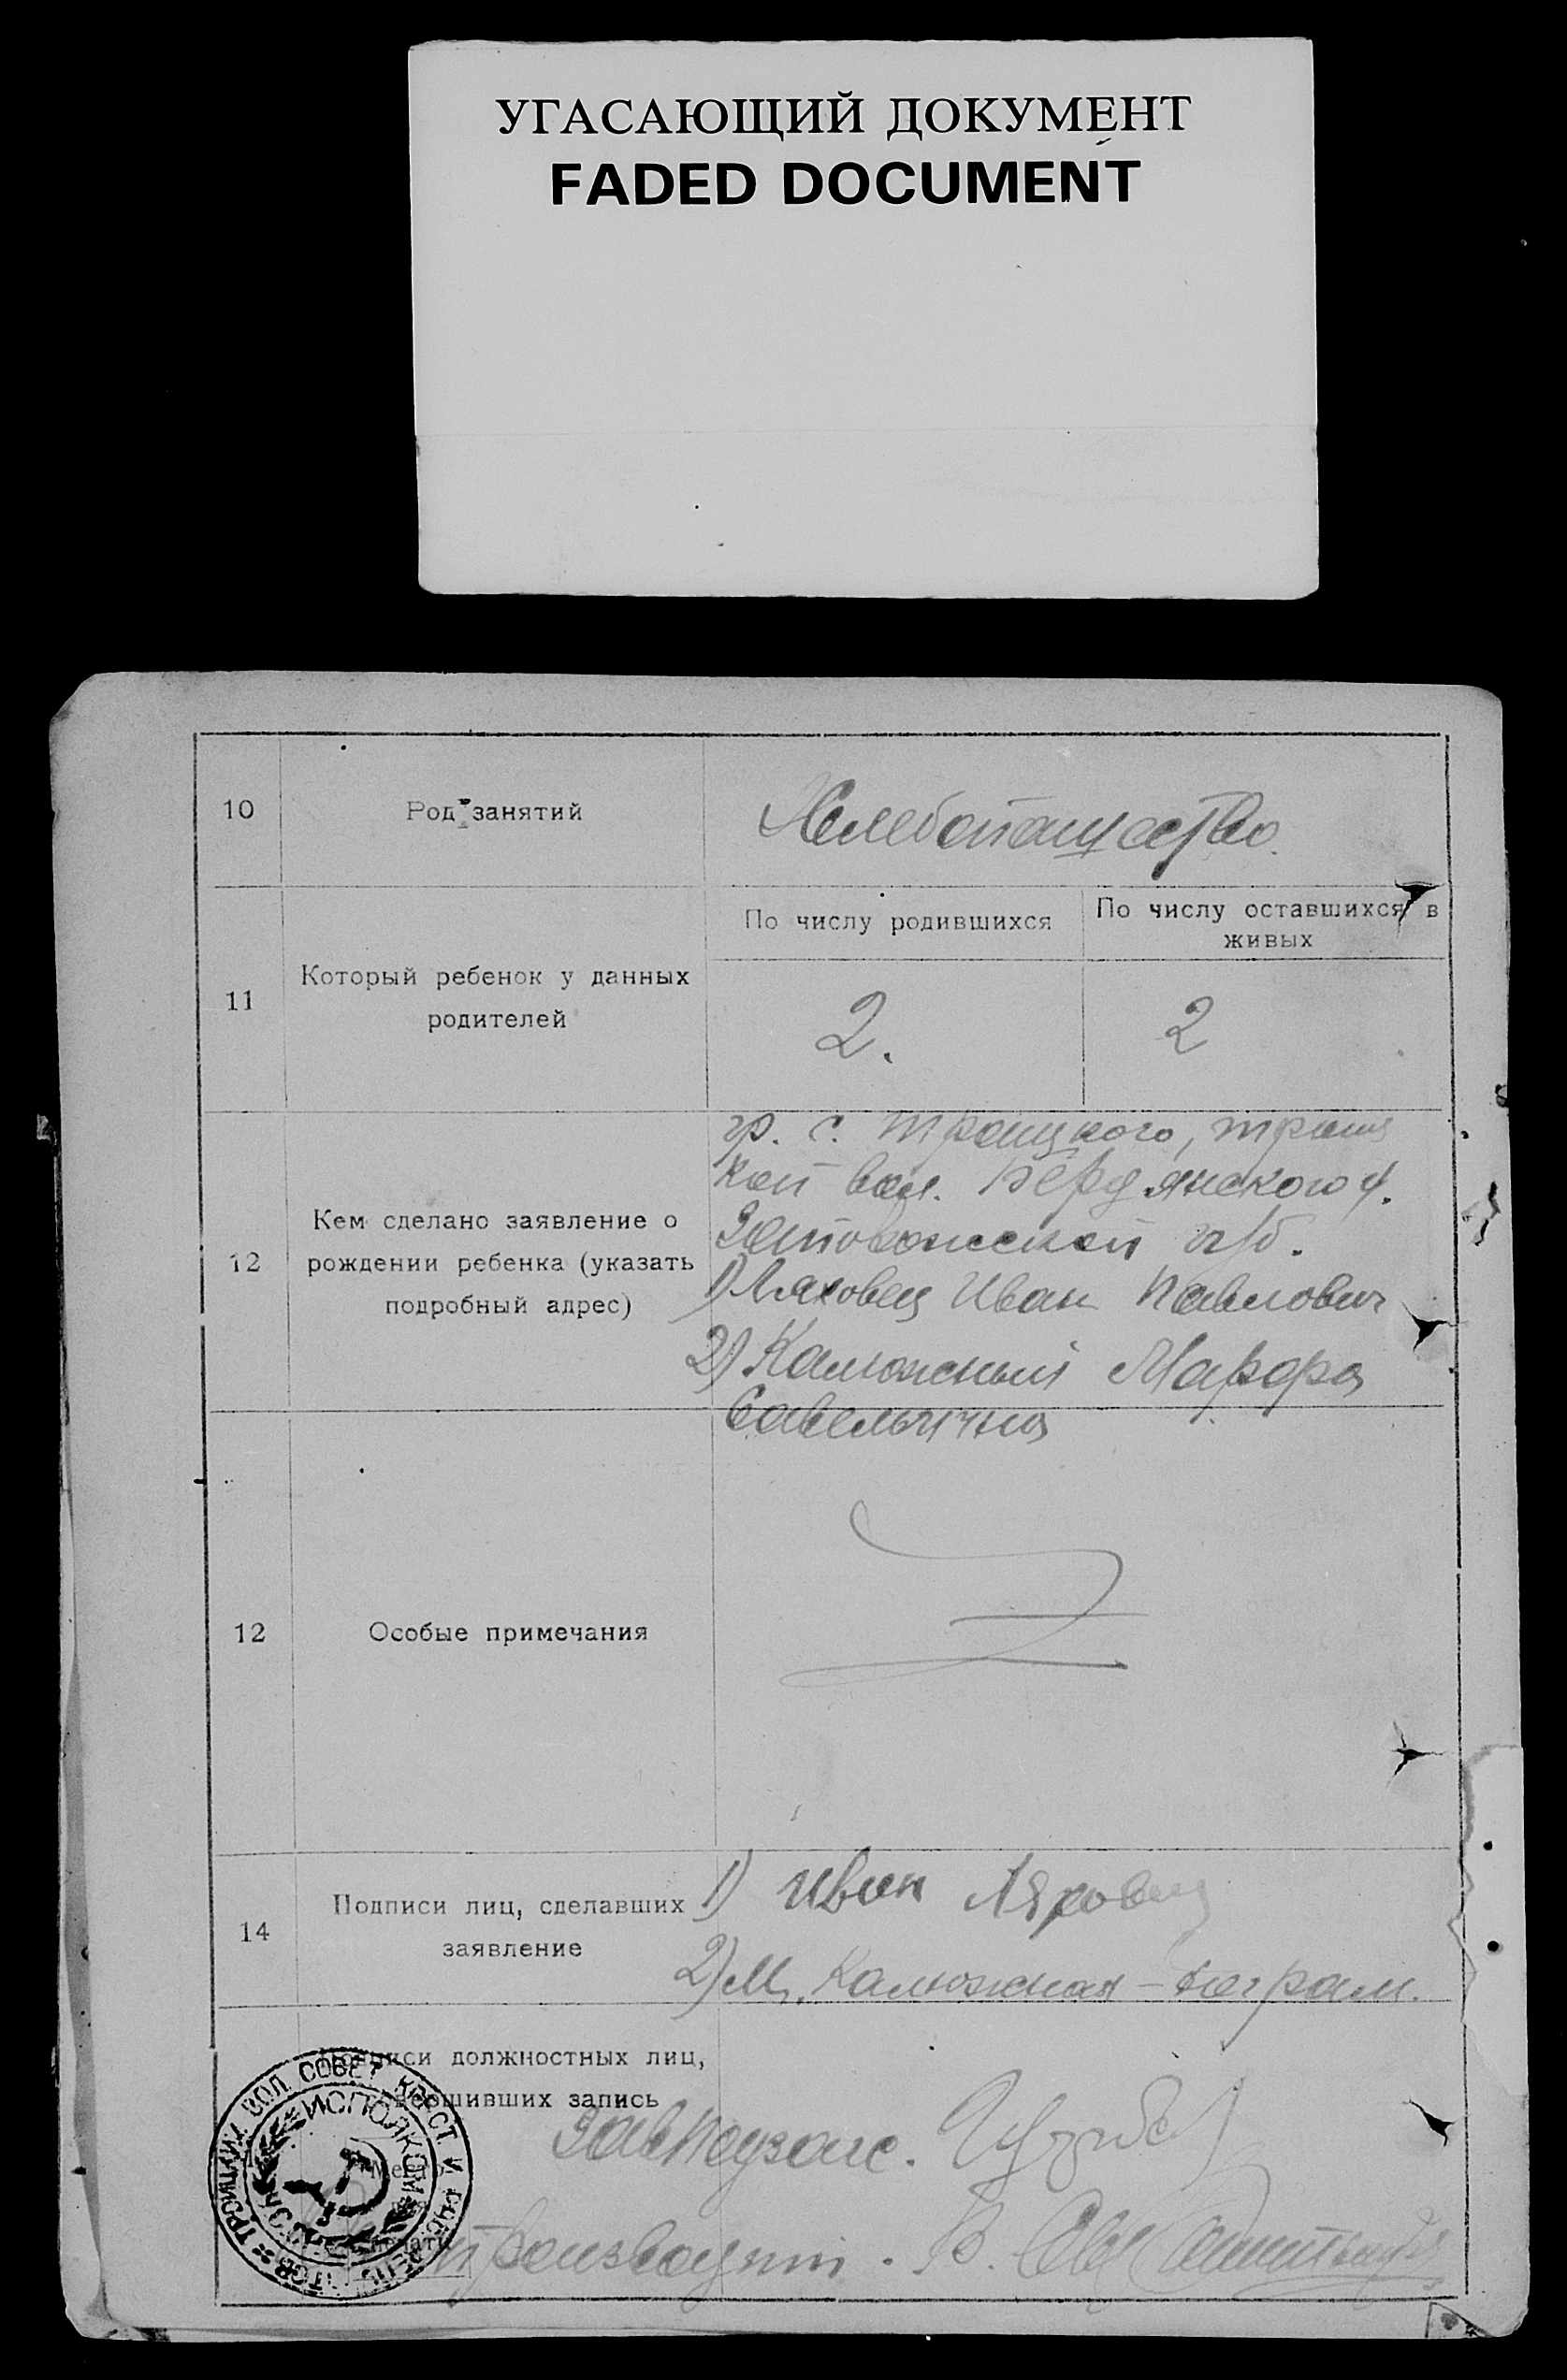 УГАСАЮЩИЙ ДОКУМЕНТ
FADED DOCUMENT
10 Род занятий Хелебопашество.
11 Который ребенок у данных родителей
По числу родившихся
По числу оставшихся в живых
2. 2
12 Кем сделано заявление о
рождении ребенка (указать
подробный адрес)
гр. с. Троицкого, Троиц
кой вол. Бердянского у.
Запорожской губ.
1) Ляховец Иван Павлович
2) Калюжный Марфа
Савельична
12 Особые примечания
14 Подписи лиц, сделавших
заявление
1) Иван Ляховец
2) М. Калюжная - неграм.
Подписи должностных лиц,
совершивших запись
Место
печати
ТРОИЦКИЙ ВОЛ. СОВЕТ КРЕСТ. И
ИСПОЛКОМ
Завподзагс.